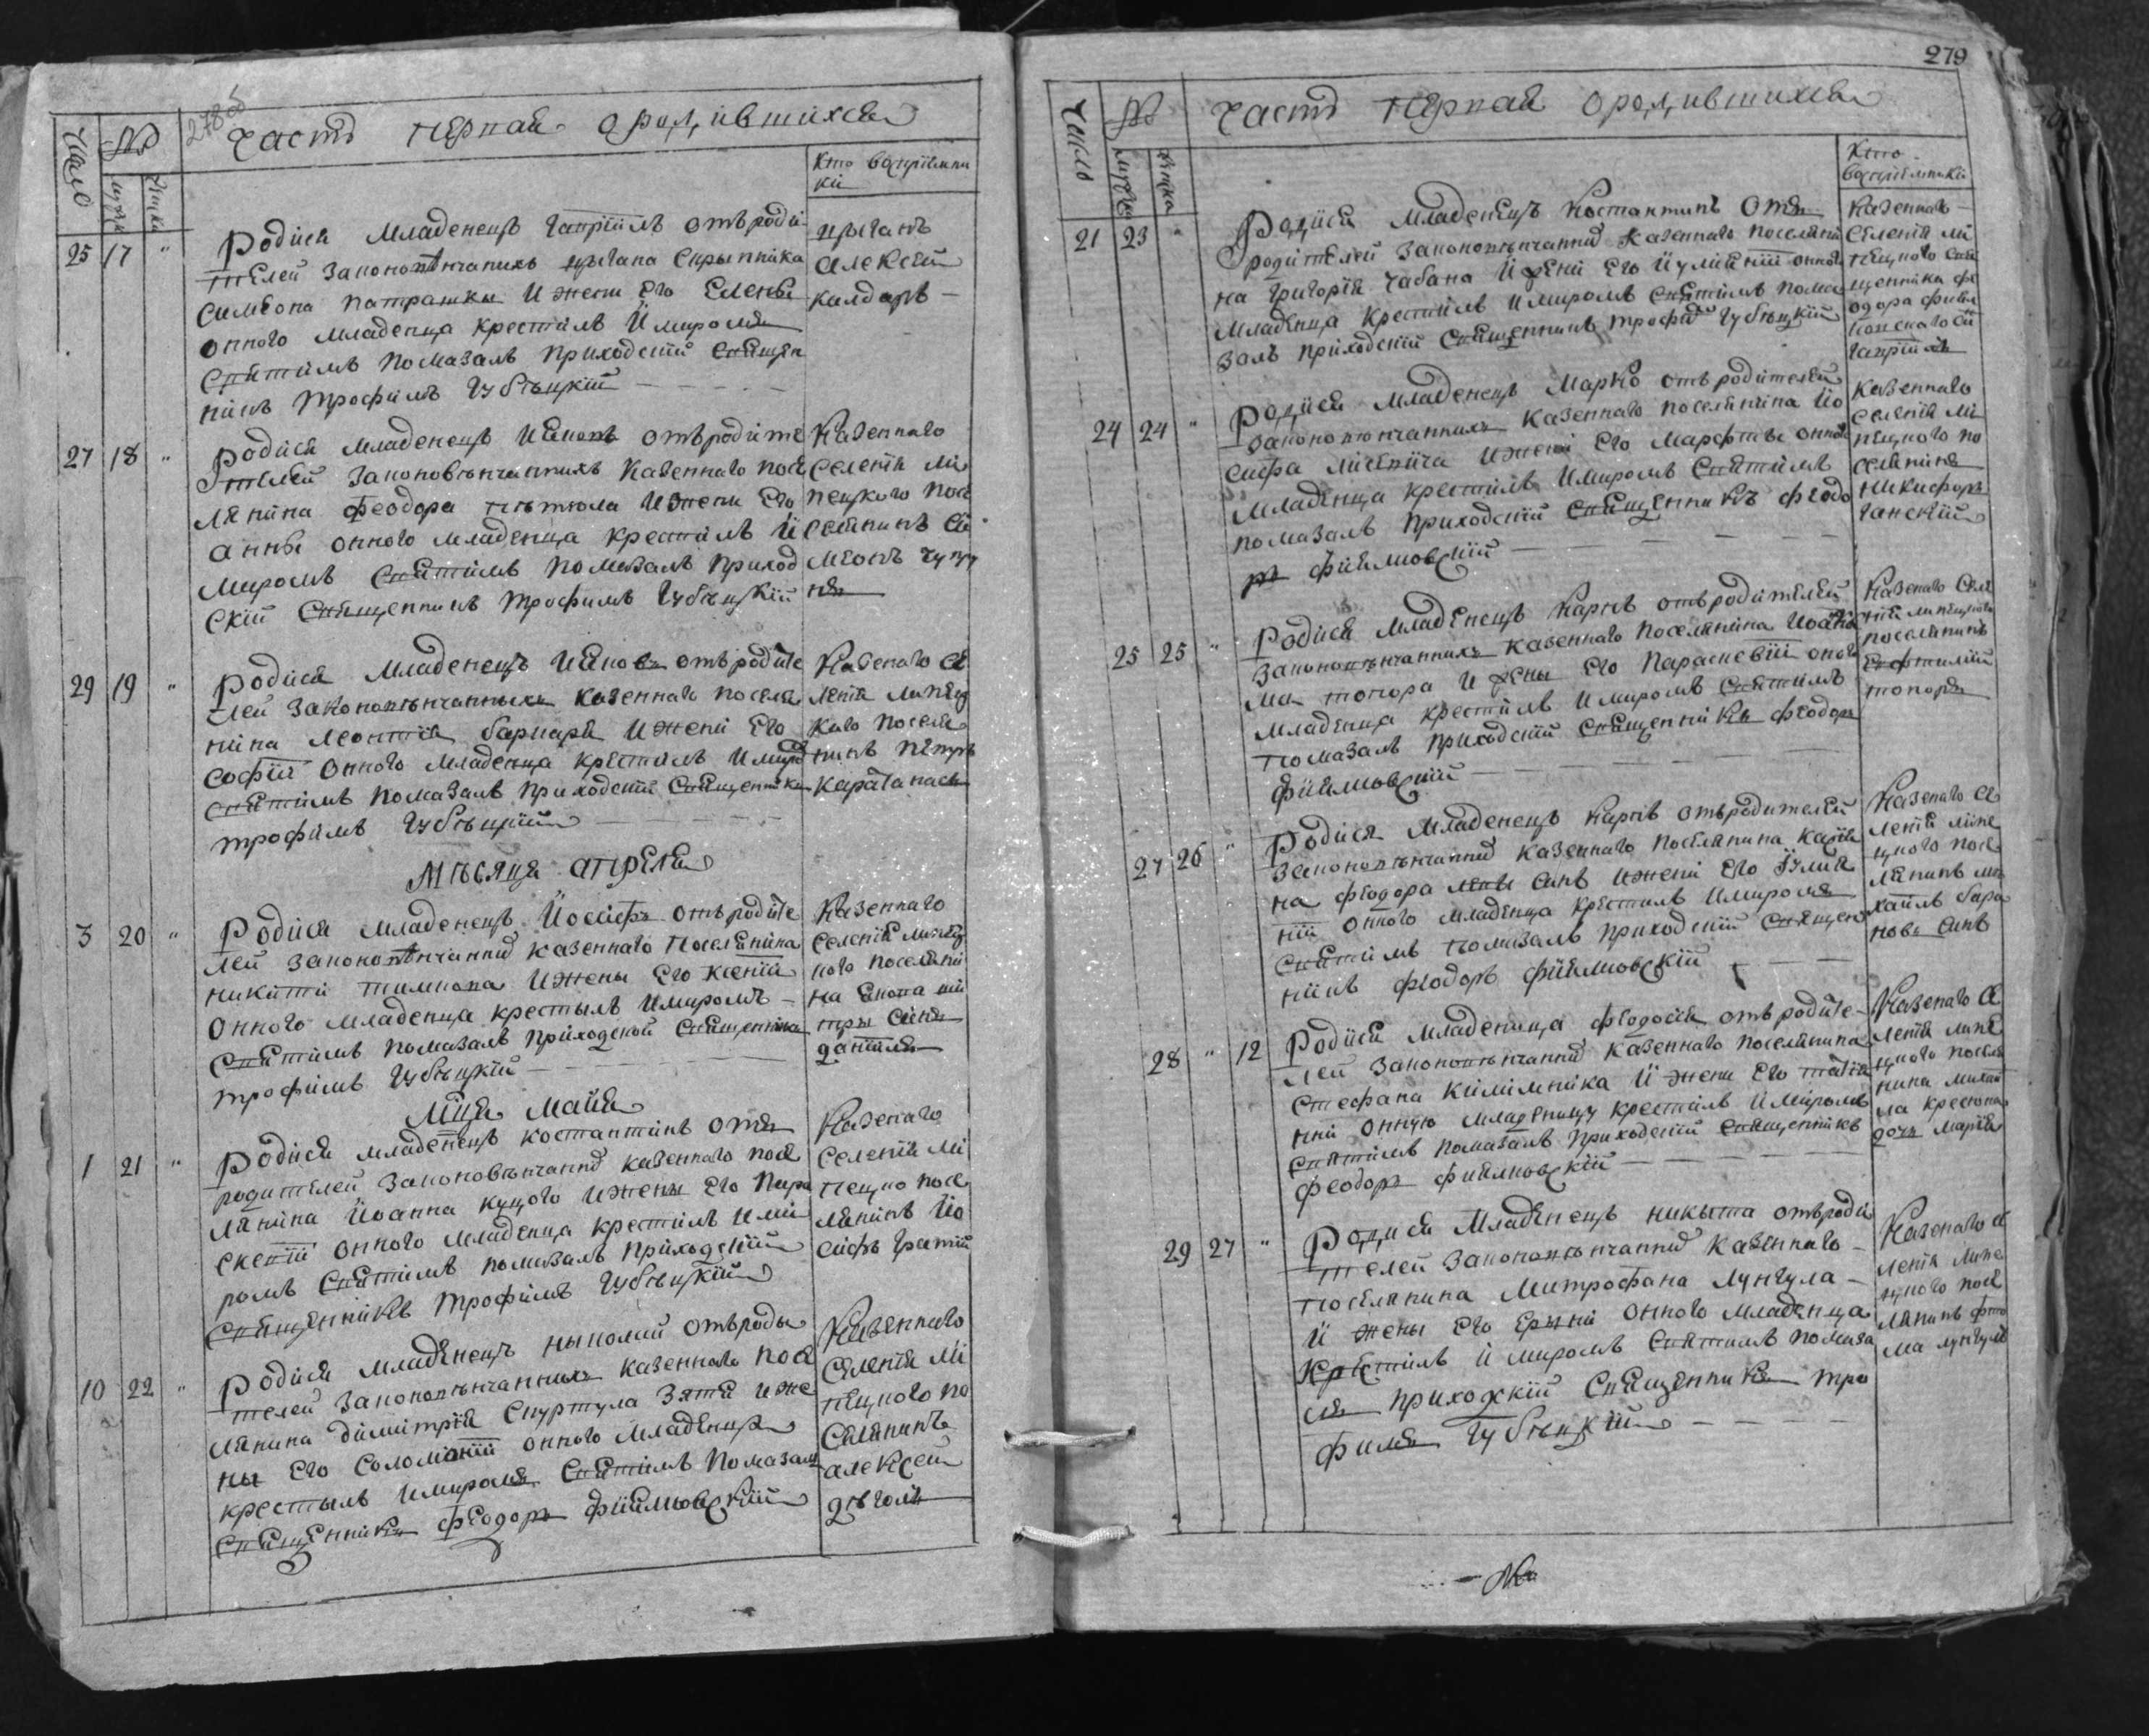 278об
Часть первая о родившихся
Число
№
мужск
женск
Кто восприемни
ки
25 17 "
Родися младенецъ Гавріилъ отъ роди
телей законовѣнчаныхъ цыгана скрыпника
Симеона Патрашки и жени его Елены
онного младенца крестилъ и миромъ
святимъ помазалъ приходскій священ
никъ Трофимъ Губѣцкій
цыганъ
Алексѣй
Калдаръ
27 18 "
Родися младенецъ Іаковъ отъ родите
телей законовѣнчанихъ казенного посе
лянина Феодора и жени его
Анны онного младенца крестилъ и
миромъ святимъ помазалъ приход
скій священникъ Трофимъ Губѣцкій
Казенного
селенія Ли
пецкого посе
селянинъ Си
меонъ
29 19 "
Родися младенецъ Іаковъ отъ родите
лей законовѣнчанныхъ казенного поселя
нина Леонтія Барнара и жені его
Софіи онного младенца крестилъ и миро
святимъ помазалъ приходскій священникъ
Трофимъ Губѣцкій
Казенаго се
ленія Липец
каго поселя
нинъ Петръ
Каратанасъ
Мѣсяца Апреля
3 20 "
Родися младенецъ Иосифъ отъ родите
лей законовѣнчанид казенного поселянина
Никити Тимиона и жены его Ксеніи
онного младенца крестылъ и миромъ
святимъ помазалъ приходской священникъ
Трофимъ Губѣцкій
Казенного
селенія Липец
кого поселяни
на
сынъ
Даніилъ
Мца Майя
1 21 "
Родися младенецъ Костантинъ отъ
родителей законовѣнчанид казенного посе
лянина Иоанна Куцого и жены его Пара
скевіи онного младенца крестилъ и ми
ромъ святимъ помазалъ приходскій
священникъ Трофимъ Губѣцкій
Казенаго
селенія Ли
пецко посе
лянинъ Ио
сифъ
10 22 "
Родися младенецъ отъ роды
телей законовѣнчанныхъ казенного посе
лянина Димитрія Скуртула зятя и же
ны его Соломоніи онного младенца
крестылъ и миромъ святимъ помазалъ
священникъ Феодоръ Фіялковскій
Казенного
селенія Ли
пецкого по
селянинъ
Алексѣй
279
Часть первая о родившихся
Число
№
женска
Кто
восприемники
21 23 "
Родися младенецъ Костантинъ отъ
родителей законовѣнчанид казенного поселяни
на Григорія Чабана и жени его Иуліяніи онного
младенца крестилъ и миромъ святимъ пома
залъ приходскій священникъ Трофим Губѣцкій
Казенного
селенія Ли
пецкого свя
щенника Фе
одора Фиял
ковского си
Гавріилъ
24 24 "
Родися младенецъ Марко отъ родителей
законовѣнчанныхъ казенного поселянина Ио
сифа и жені его Марфты онного
младенца крестилъ и миромъ святимъ
помазалъ приходскій священникъ Феодо
ръ Фиялковскій
Казенного
селенія Ли
пецкого по
селянинъ
Никифоръ
Ганскій
25 25 "
Родися младенецъ Карпъ отъ родителей
законовѣнчаннихъ казенного поселянина Иоаки
ма Топора и жены его Параскевіи оного
младенца крестилъ и миромъ святимъ
помазалъ приходскій священникъ Феодоръ
Фиялковскій
Казенаго селе
нія Липецкого
поселянинъ
Евфтимій
Топоръ
27 26 "
Родися младенецъ Карпъ отъ родителей
законовѣнчанид казенного поселянина
на Феодора синъ и жені его Іулия
ніи онного младенца крестилъ и миромъ
святимъ помазалъ приходскій священ
никъ Феодоръ Фиялковскій
Казенаго се
ленія Липе
цкого посе
лянинъ Ми
хаилъ Бара
новъ синъ
28 " 12
Родися младеница Феодосія отъ родите
лей законовѣнчанид казенного поселянина
Стефана Килимника и жени его Татія
ни онную младеницу крестилъ и миромъ
святимъ помазалъ приходскій священникъ
Феодоръ Фиялковскій
Казенаго се
ленія Липе
цкого поселя
нина Михаи
ла
дочъ Марія
29 27 "
Родися младенецъ Никыта отъ роди
телей законовѣнчанид казенного
поселянина Митрофана Лунгула
и жены его Ерини онного младенца
крестилъ и миромъ святимъ помаза
лъ приходскій священникъ Тро
фимъ Губѣцкій
Казенаго се
ленія Липе
цкого посе
лянинъ Фто
ма Лунгулъ